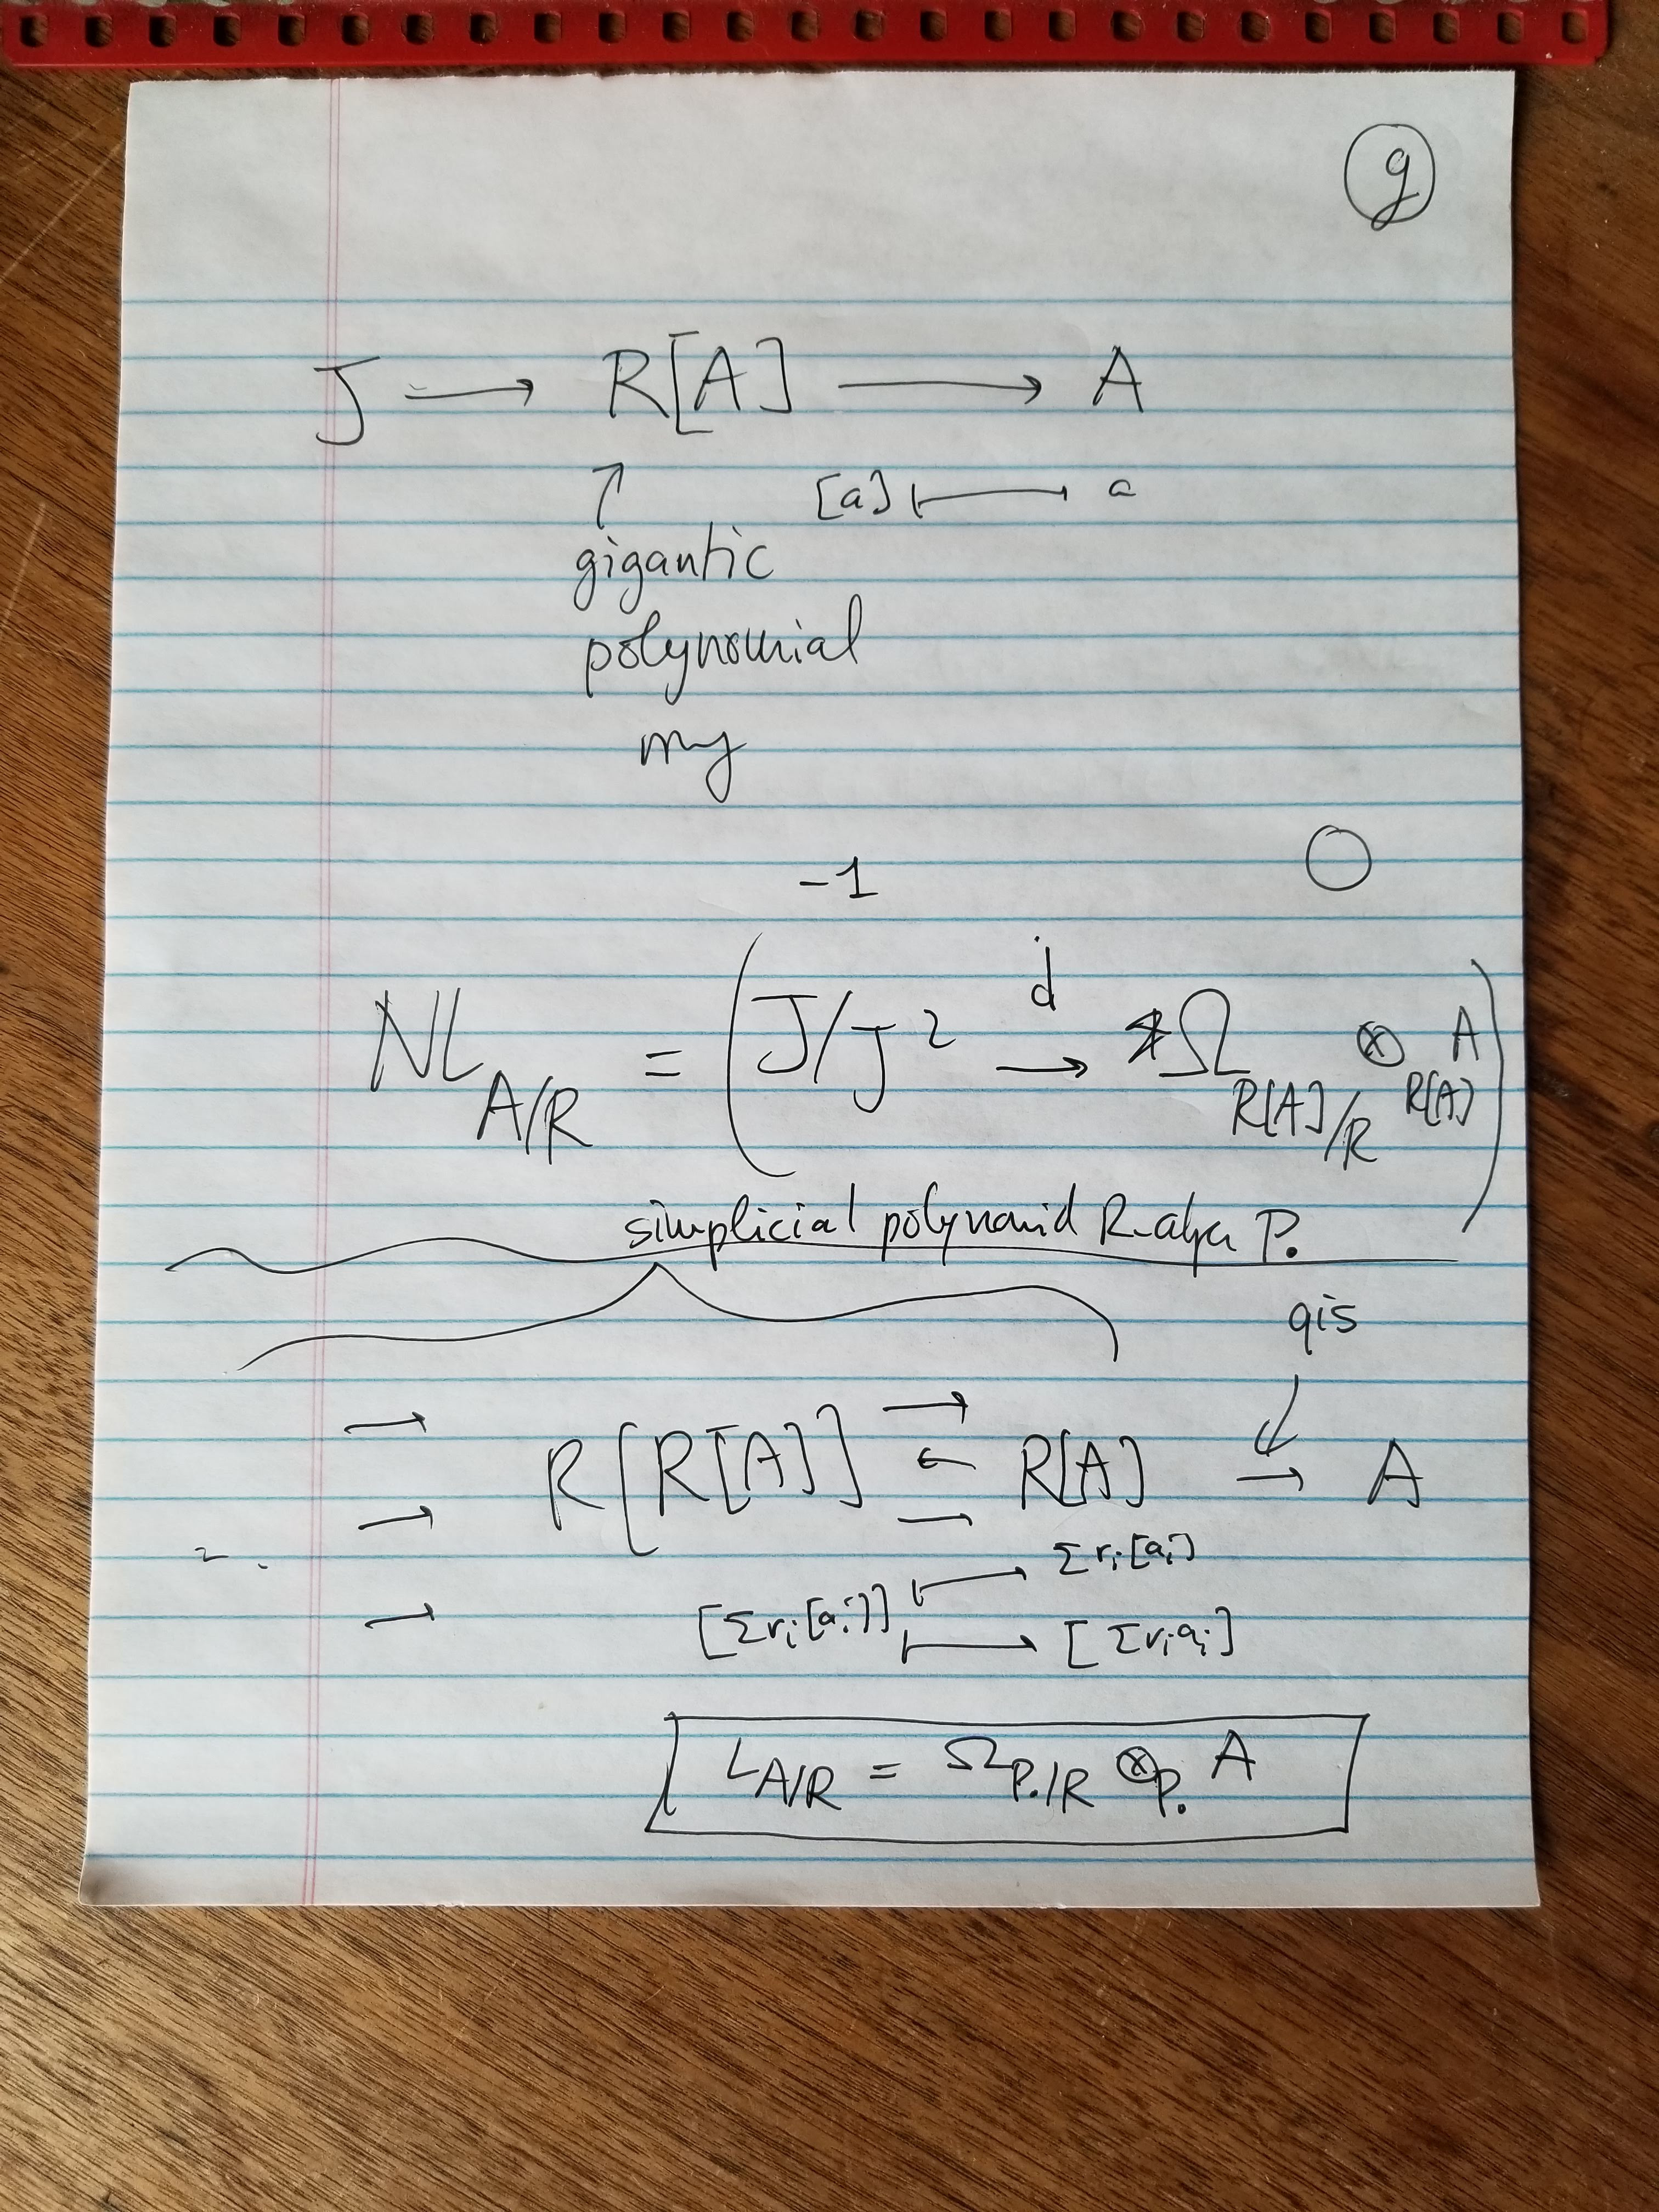 9
J → R[A] → A
[a] ⟼ a
↑
gigantic
polynomial
rng
-1 0
NL_{A/R} = ( J/J² →^{d} Ω_{R[A]/R} ⊗_{R[A]} A )
simplicial polynomial R-alga P.
qis
R[R[A]] R[A] → A
Σ r_i [a_i]
[Σ r_i [a_i]] ⟼ [Σ r_i a_i]
L_{A/R} = Ω_{P./R} ⊗_{P.} A